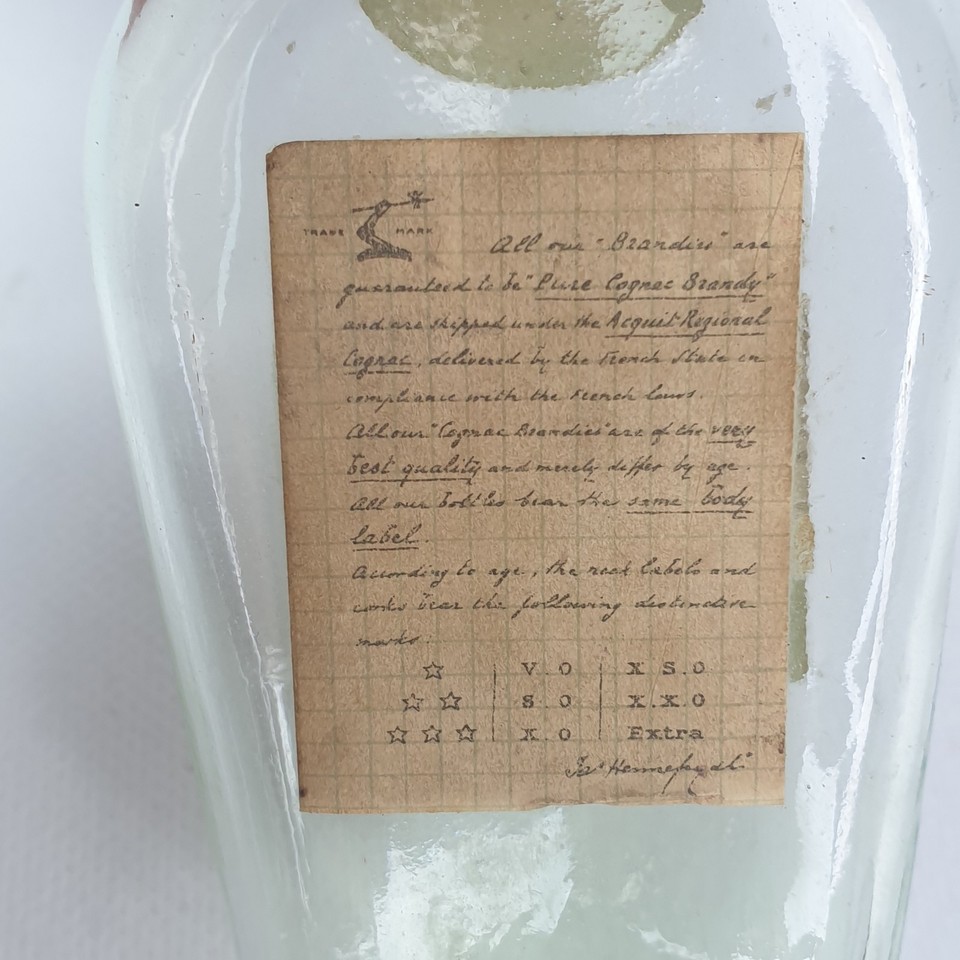 TRADE MARK
All our "Brandies" are
guaranteed to be "Pure Cognac Brandy"
and are shipped under the Acquit Regional
Cognac, delivered by the French State in
compliance with the French laws.
All our "Cognac Brandies" are of the very
best quality and merely differ by age.
All our bottles bear the same body
label.
According to age, the neck labels and
corks bear the following distinctive
marks.
☆ V.O X S.O
☆☆ S.O X.X.O
☆☆☆ X.O Extra
Jas Hennessy & Co